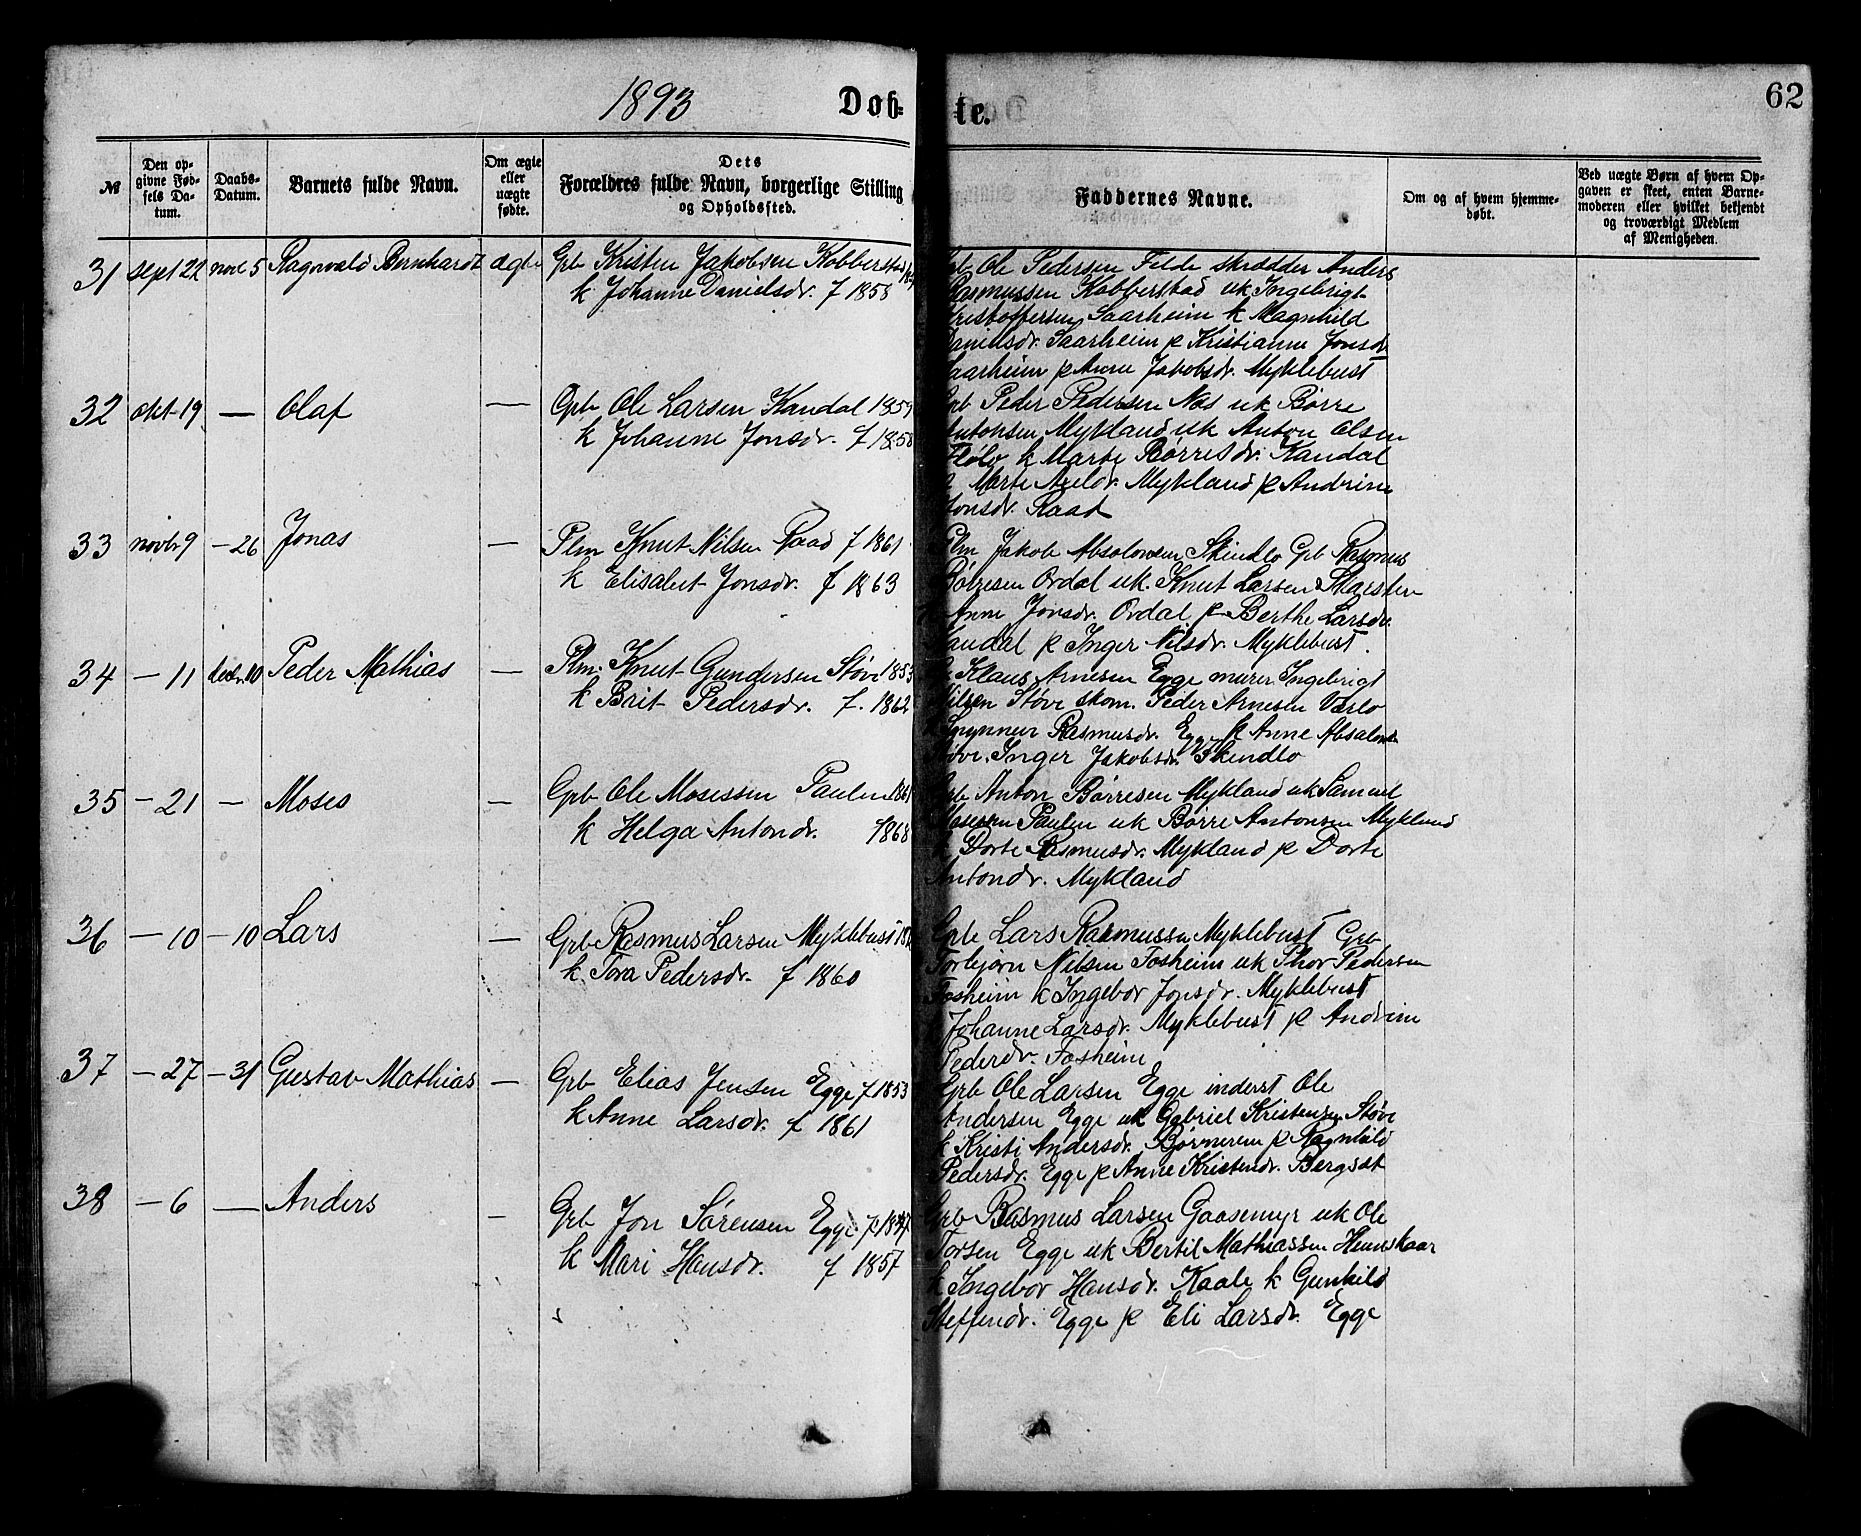 1893 Døb-
te.
62
№
Den op-
givne Fød-
sels Da-
tum.
Daabs-
Datum.
Barnets fulde Navn.
Om ægte
eller
uægte
fødte.
Dets
Forældres fulde Navn, borgerlige Stilling
og Opholdssted.
Faddernes Navne.
Om og af hvem hjemme-
døbt.
Ved uægte Børn af hvem Op-
gaven er skeet, enten Barne-
moderen eller hvilket bekjendt
og troværdigt Medlem
af Menigheden.
31 sept 22 nov 5 Ragnvald Bernhardt ægte Grb Kristen Jakobsen Kobberstad
k Johanne Danielsdr. f 1858
Ole Pedersen Felde skrædder Anders
Rasmussen Kobberstad uk Ingebrigt
Kristoffersen Saarheim k Magnhild
Danielsdr. Saarheim p Kristianne Jonsdr
Saarheim p Anne Jakobsdr. Myklebust
32 okt 19 — Olaf — Grb Ole Larsen Kandal 1859
k Johanne Jonsdr. f 1858
Grb Peder Pedersen Nes uk Børre
Antonsen Mykland uk Anton Olsen
Flølo k Marte Børresdr. Kandal
Marte Mykland p Andrine
Jonsdr. Raad
33 novbr 9 — 26 Jonas — Plm Knut Nilsen Raad f 1861
k Elisabet Jonsdr. f 1863
Plm Jakob Absalonsen Skindlo Grb Rasmus
Ordal uk. Knut Larsen Skarsten
Anne Jonsdr. Ordal p Berthe Larsdr.
Kandal p Inger Nilsdr. Myklebust.
34 — 11 decbr. 10 Peder Mathias — Plm. Knut Gundersen Støve 1853
k Brit Pedersdr. f. 1862
Klaus Arnesen Egge murer Ingebrigt
Nilsen Støve skom. Peder Arnesen Værlo
Rasmusdr. Egge k Anne Absalonsdr
Støve. Inger Jakobsdr. Skindlo
35 — 21 — Moses — Grb Ole Mosessen Paulen 1861
k Helga Antondr. 1868
Grb Anton Børresen Mykland uk Samuel
Mosessen Paulen uk Børre Antonsen Mykland
k Dorte Rasmusdr. Mykland p Dorte
Antondr. Mykland
36 — 10 — 10 Lars — Grb Rasmus Larsen Myklebust
k. Tora Pedersdr. f 1860
Grb Lars Rasmussen Myklebust Grb
Torbjørn Nilsen Fosheim uk Thor Pedersen
Fosheim k Ingebor Jonsdr. Myklebust
Johanne Larsdr. Myklebust p Andrine
Pedersdr. Fosheim
37 — 27 — 31 Gustav Mathias — Grb Elias Jensen Egge f 1853
k Anne Larsdr. f 1861
Grb Ole Larsen Egge inderst Ole
Andersen Egge uk Gabriel Kristensen Støve
k Kristi Andersdr. p Ragnhild
Pedersdr. Egge p Anne Kristendr. Bergset
38 — 6 — Anders — Grb Jon Sørensen Egge
k Mari Hansdr. f 1857
Grb Rasmus Larsen Gaasemyr uk Ole
Torsen Egge uk Bertil Mathiassen Hennskaar
k Ingebor Hansdr. Kaale k Gunhild
Steffendr. Egge p Eli Larsdr. Egge